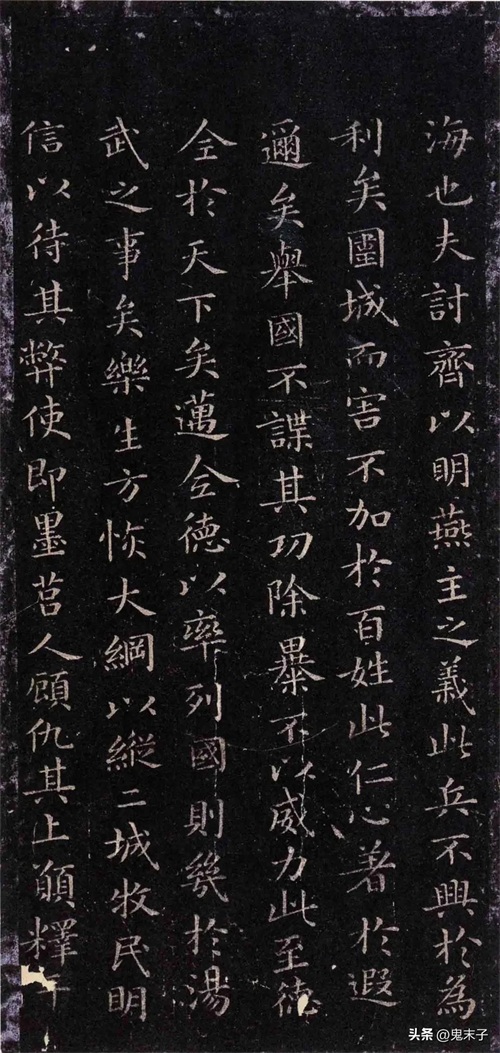 海也夫討齊以明燕主之義此兵不興於為
利矣圍城而害不加於百姓此仁心著於遐
邇矣舉國不謀其功除暴不以威力此至德
全於天下矣邁全德以率列國則幾於湯
武之事矣樂生方恢大綱以縱二城牧民明
信以待其弊使即墨莒人顧仇其上願釋干
头条 @鬼末子